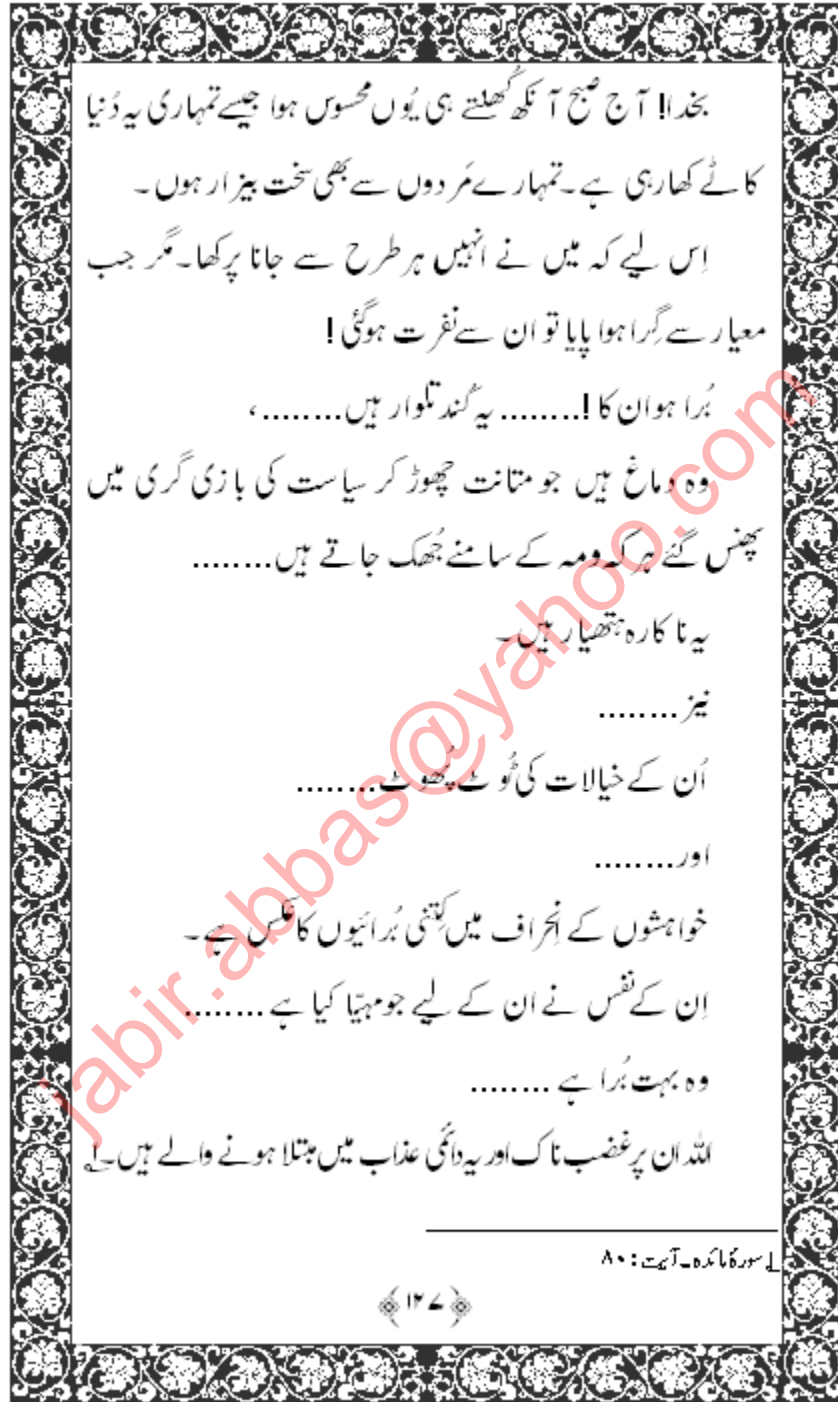 بخدا! آج صبح آنکھ کُھلتے ہی یُوں محسوس ہوا جیسے تمہاری یہ دُنیا
کاٹے کھارہی ہے۔ تمہارے مَردوں سے بھی سخت بیزار ہوں۔
اِس لیے کہ میں نے انہیں ہر طرح سے جانا پرکھا۔ مگر جب
معیار سے گِرا ہوا پایا تو ان سے نفرت ہوگئی!
بُرا ہو ان کا!........ یہ کُند تلوار ہیں........،
وہ دماغ ہیں جو متانت چھوڑ کر سیاست کی بازی گری میں
پھنس گئے ہر کہ ومہ کے سامنے جُھک جاتے ہیں........
یہ ناکارہ ہتھیار ہیں۔
نیز........
اُن کے خیالات کی ٹُوٹ پُھوٹ........
اور........
خواہشوں کے اِنحراف میں کِتنی بُرائیوں کا عکس ہے۔
اِن کے نفس نے ان کے لیے جو مہیّا کیا ہے........
وہ بہت بُرا ہے........
اللہ ان پر غضب ناک اور یہ دائمی عذاب میں مبتلا ہونے والے ہیں۔ ۱؎
۱؎ سورۂ مائدہ۔ آیت: ۸۰
﴿۱۲۷﴾
jabir.abbas@yahoo.com